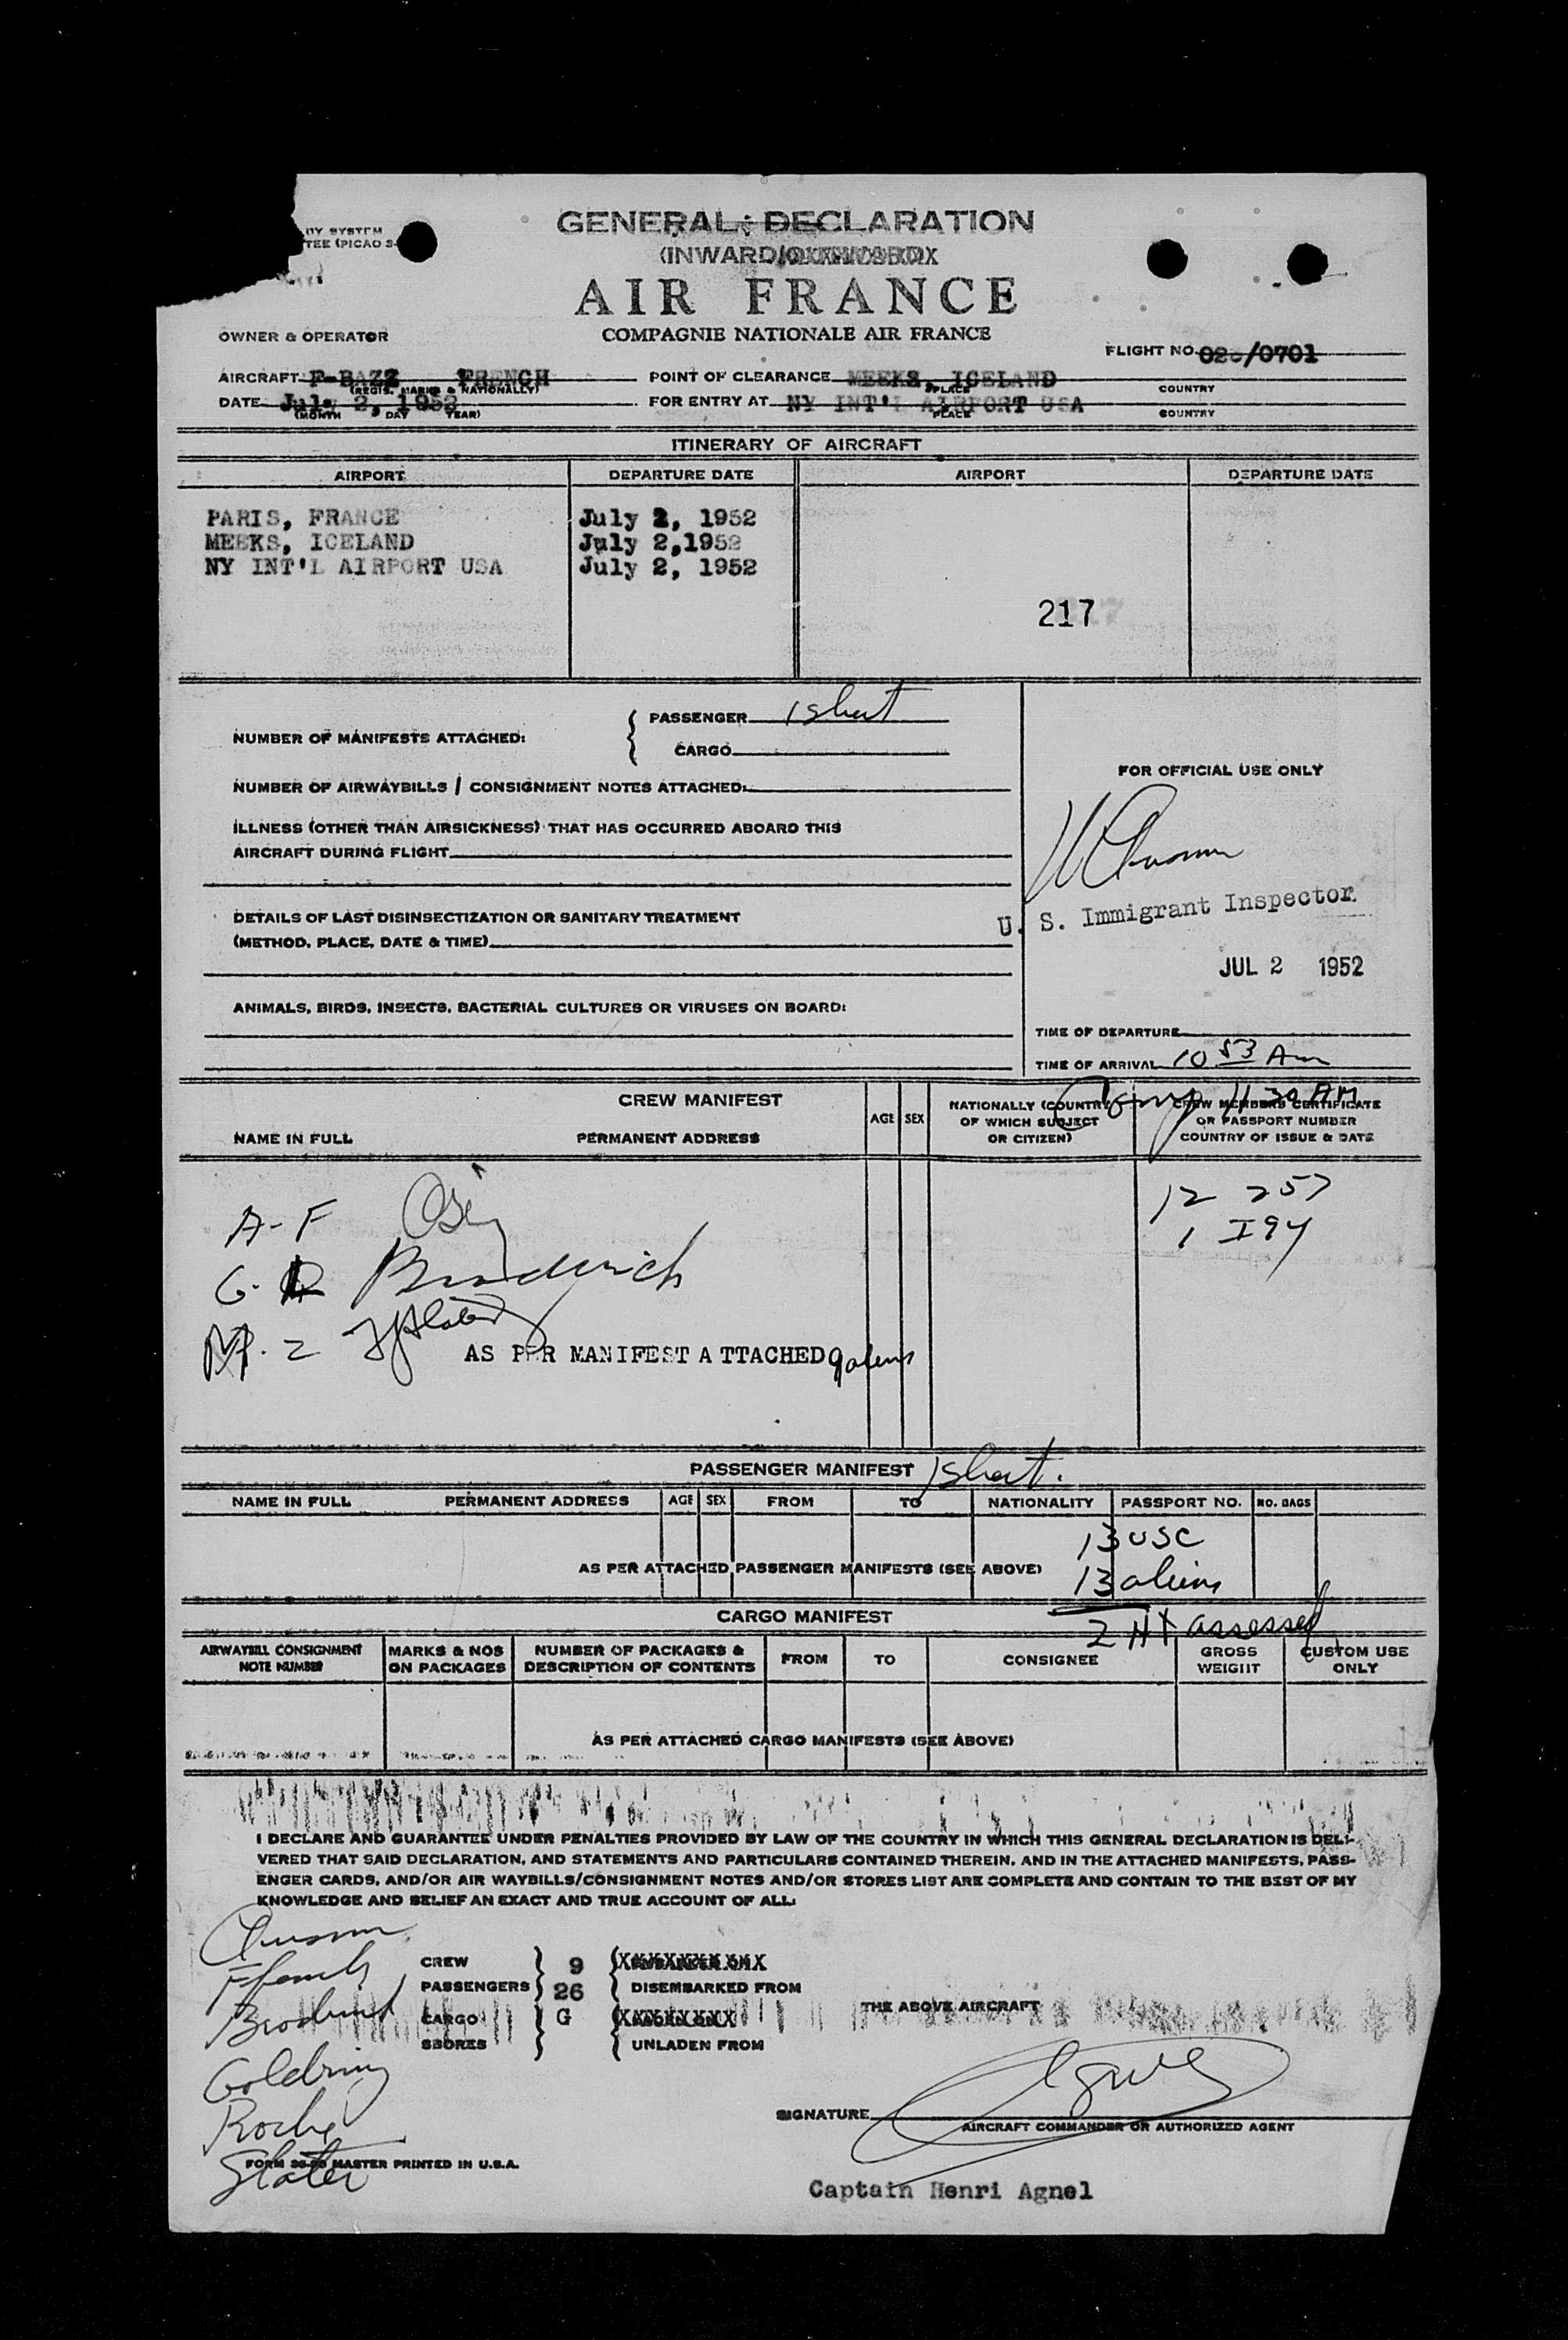 GENERAL DECLARATION
(INWARD/
AIR FRANCE
COMPAGNIE NATIONALE AIR FRANCE
OWNER & OPERATOR
FLIGHT NO. /0701
AIRCRAFT F-BAZZ FRENCH
(REGIS. MARKS & NATIONALLY)
POINT OF CLEARANCE MEEKS, ICELAND
PLACE COUNTRY
DATE July 2, 1952
(MONTH DAY YEAR)
FOR ENTRY AT NY INT'L AIRPORT USA
PLACE COUNTRY
ITINERARY OF AIRCRAFT
AIRPORT DEPARTURE DATE AIRPORT DEPARTURE DATE
PARIS, FRANCE July 2, 1952
MEEKS, ICELAND July 2,1952
NY INT'L AIRPORT USA July 2, 1952
217
NUMBER OF MANIFESTS ATTACHED:
PASSENGER 1 sheet
CARGO
NUMBER OF AIRWAYBILLS / CONSIGNMENT NOTES ATTACHED:
ILLNESS (OTHER THAN AIRSICKNESS) THAT HAS OCCURRED ABOARD THIS
AIRCRAFT DURING FLIGHT
DETAILS OF LAST DISINSECTIZATION OR SANITARY TREATMENT
(METHOD, PLACE, DATE & TIME)
ANIMALS, BIRDS, INSECTS, BACTERIAL CULTURES OR VIRUSES ON BOARD:
FOR OFFICIAL USE ONLY
U. S. Immigrant Inspector
JUL 2 1952
TIME OF DEPARTURE
TIME OF ARRIVAL 10 53 Am
11 30 AM
CREW MANIFEST
NAME IN FULL PERMANENT ADDRESS AGE SEX
NATIONALLY (COUNTRY
OF WHICH SUBJECT
OR CITIZEN)
CREW MEMBERS CERTIFICATE
OR PASSPORT NUMBER
COUNTRY OF ISSUE & DATE
12 257
1 I94
A-F
G-
2
AS PER MANIFEST ATTACHED 9 aliens
PASSENGER MANIFEST 1 sheet.
NAME IN FULL PERMANENT ADDRESS AGE SEX FROM TO NATIONALITY PASSPORT NO. NO. BAGS
13 USC
AS PER ATTACHED PASSENGER MANIFESTS (SEE ABOVE)
13 aliens
CARGO MANIFEST
2 HT assessed
AIRWAYBILL CONSIGNMENT
NOTE NUMBER
MARKS & NOS
ON PACKAGES
NUMBER OF PACKAGES &
DESCRIPTION OF CONTENTS
FROM TO CONSIGNEE
GROSS
WEIGHT
CUSTOM USE
ONLY
AS PER ATTACHED CARGO MANIFESTS (SEE ABOVE)
I DECLARE AND GUARANTEE UNDER PENALTIES PROVIDED BY LAW OF THE COUNTRY IN WHICH THIS GENERAL DECLARATION IS DELI-
VERED THAT SAID DECLARATION, AND STATEMENTS AND PARTICULARS CONTAINED THEREIN, AND IN THE ATTACHED MANIFESTS, PASS-
ENGER CARDS, AND/OR AIR WAYBILLS/CONSIGNMENT NOTES AND/OR STORES LIST ARE COMPLETE AND CONTAIN TO THE BEST OF MY
KNOWLEDGE AND BELIEF AN EXACT AND TRUE ACCOUNT OF ALL:
CREW 9
PASSENGERS 26 DISEMBARKED FROM
CARGO G
THE ABOVE AIRCRAFT
SBORES UNLADEN FROM
Goldring
Roche
Slater
SIGNATURE Agnel
AIRCRAFT COMMANDER OR AUTHORIZED AGENT
FORM MASTER PRINTED IN U.S.A.
Captain Henri Agnel